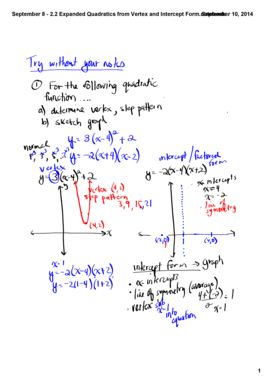 September 8 - 2.2 Expanded Quadratics from Vertex and Intercept Form.September 10, 2014
Try without your notes
① For the following quadratic
function ....
a) determine vertex, step pattern
b) sketch graph
y = 3(x-4)² + 2
y = -2(x+4)(x-2)
normal
vertex
y = 3(x-4)² + 2
y
vertex (4,2)
step pattern
3, 9, 15, 21
(4,2)
x
intercept / factored
form
y = -2(x-4)(x+2)
x intercepts
x=4
x=-2
line of
symmetry
(-2,0)
(4,0)
x=1
y = -2(x-4)(x+2)
y = -2(1-4)(1+2)
intercept form → graph
• x intercepts
• line of symmetry (average)
4+(-2) = 1
2
x=1
• vertex sub
x=1
into
equation
1